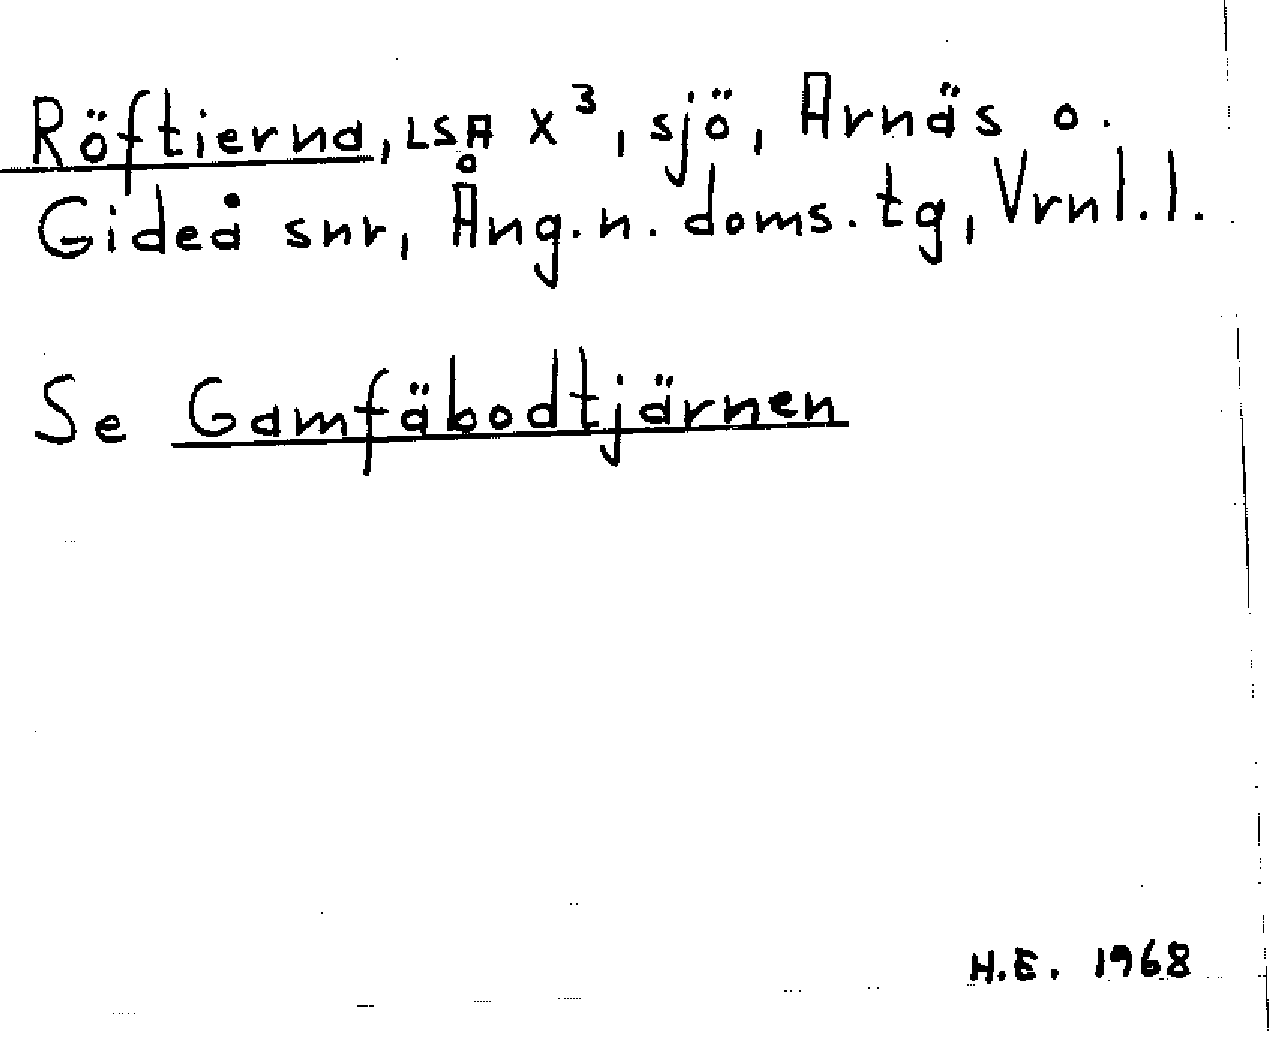 Röftierna, LSA X³, sjö, Arnäs o.
Gideå snr, Ång.n. doms.tg, Vrnl.l.
Se Gamfäbodtjärnen
H.E. 1968